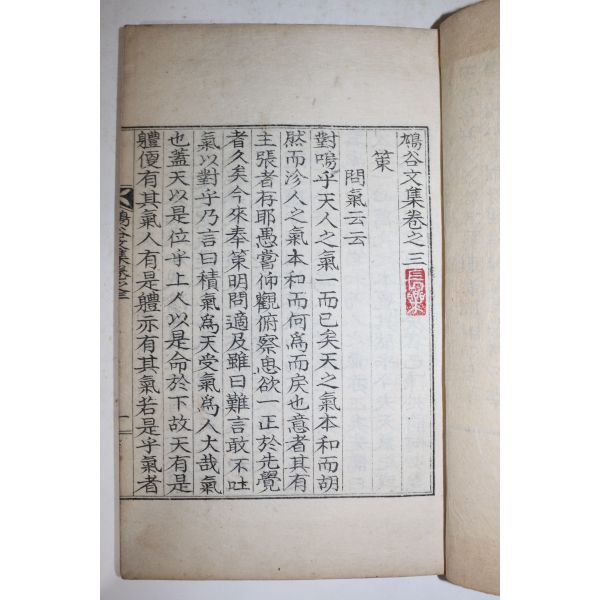 鳩谷文集卷之三
策
問氣云云
對嗚乎天人之氣一而已矣天之氣本和而胡
然而沴人之氣本和而何爲而戾也意者其有
主張者存耶愚嘗仰觀俯察思欲一正於先覺
者久矣今來奉策明問適及雖曰難言敢不吐
氣以對乎乃言曰積氣爲天受氣爲人大哉氣
也蓋天以是位乎上人以是命於下故天有是
軆便有其氣人有是軆亦有其氣若是乎氣者
鳩谷文集卷之三
一